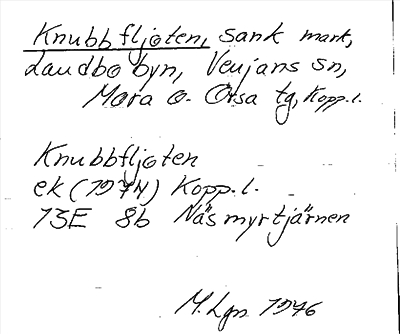 Knubbfljoten, sank mark,
Landbo byn, Venjans sn,
Mora o. Orsa tg, Kopp. l.
Knubbfljoten
ek (1974) Kopp. l.
13E 8b Näsmyrtjärnen
M. Lgn 1976